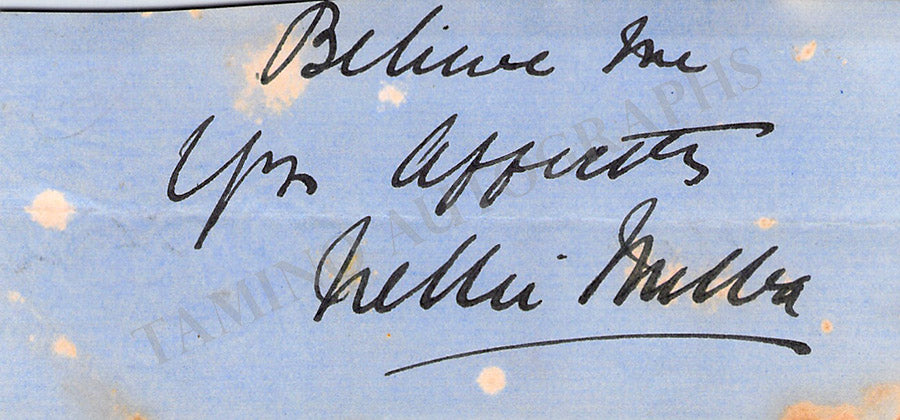 Believe me
Yrs Affectly
Nellie Melba
TAMINO AUTOGRAPHS